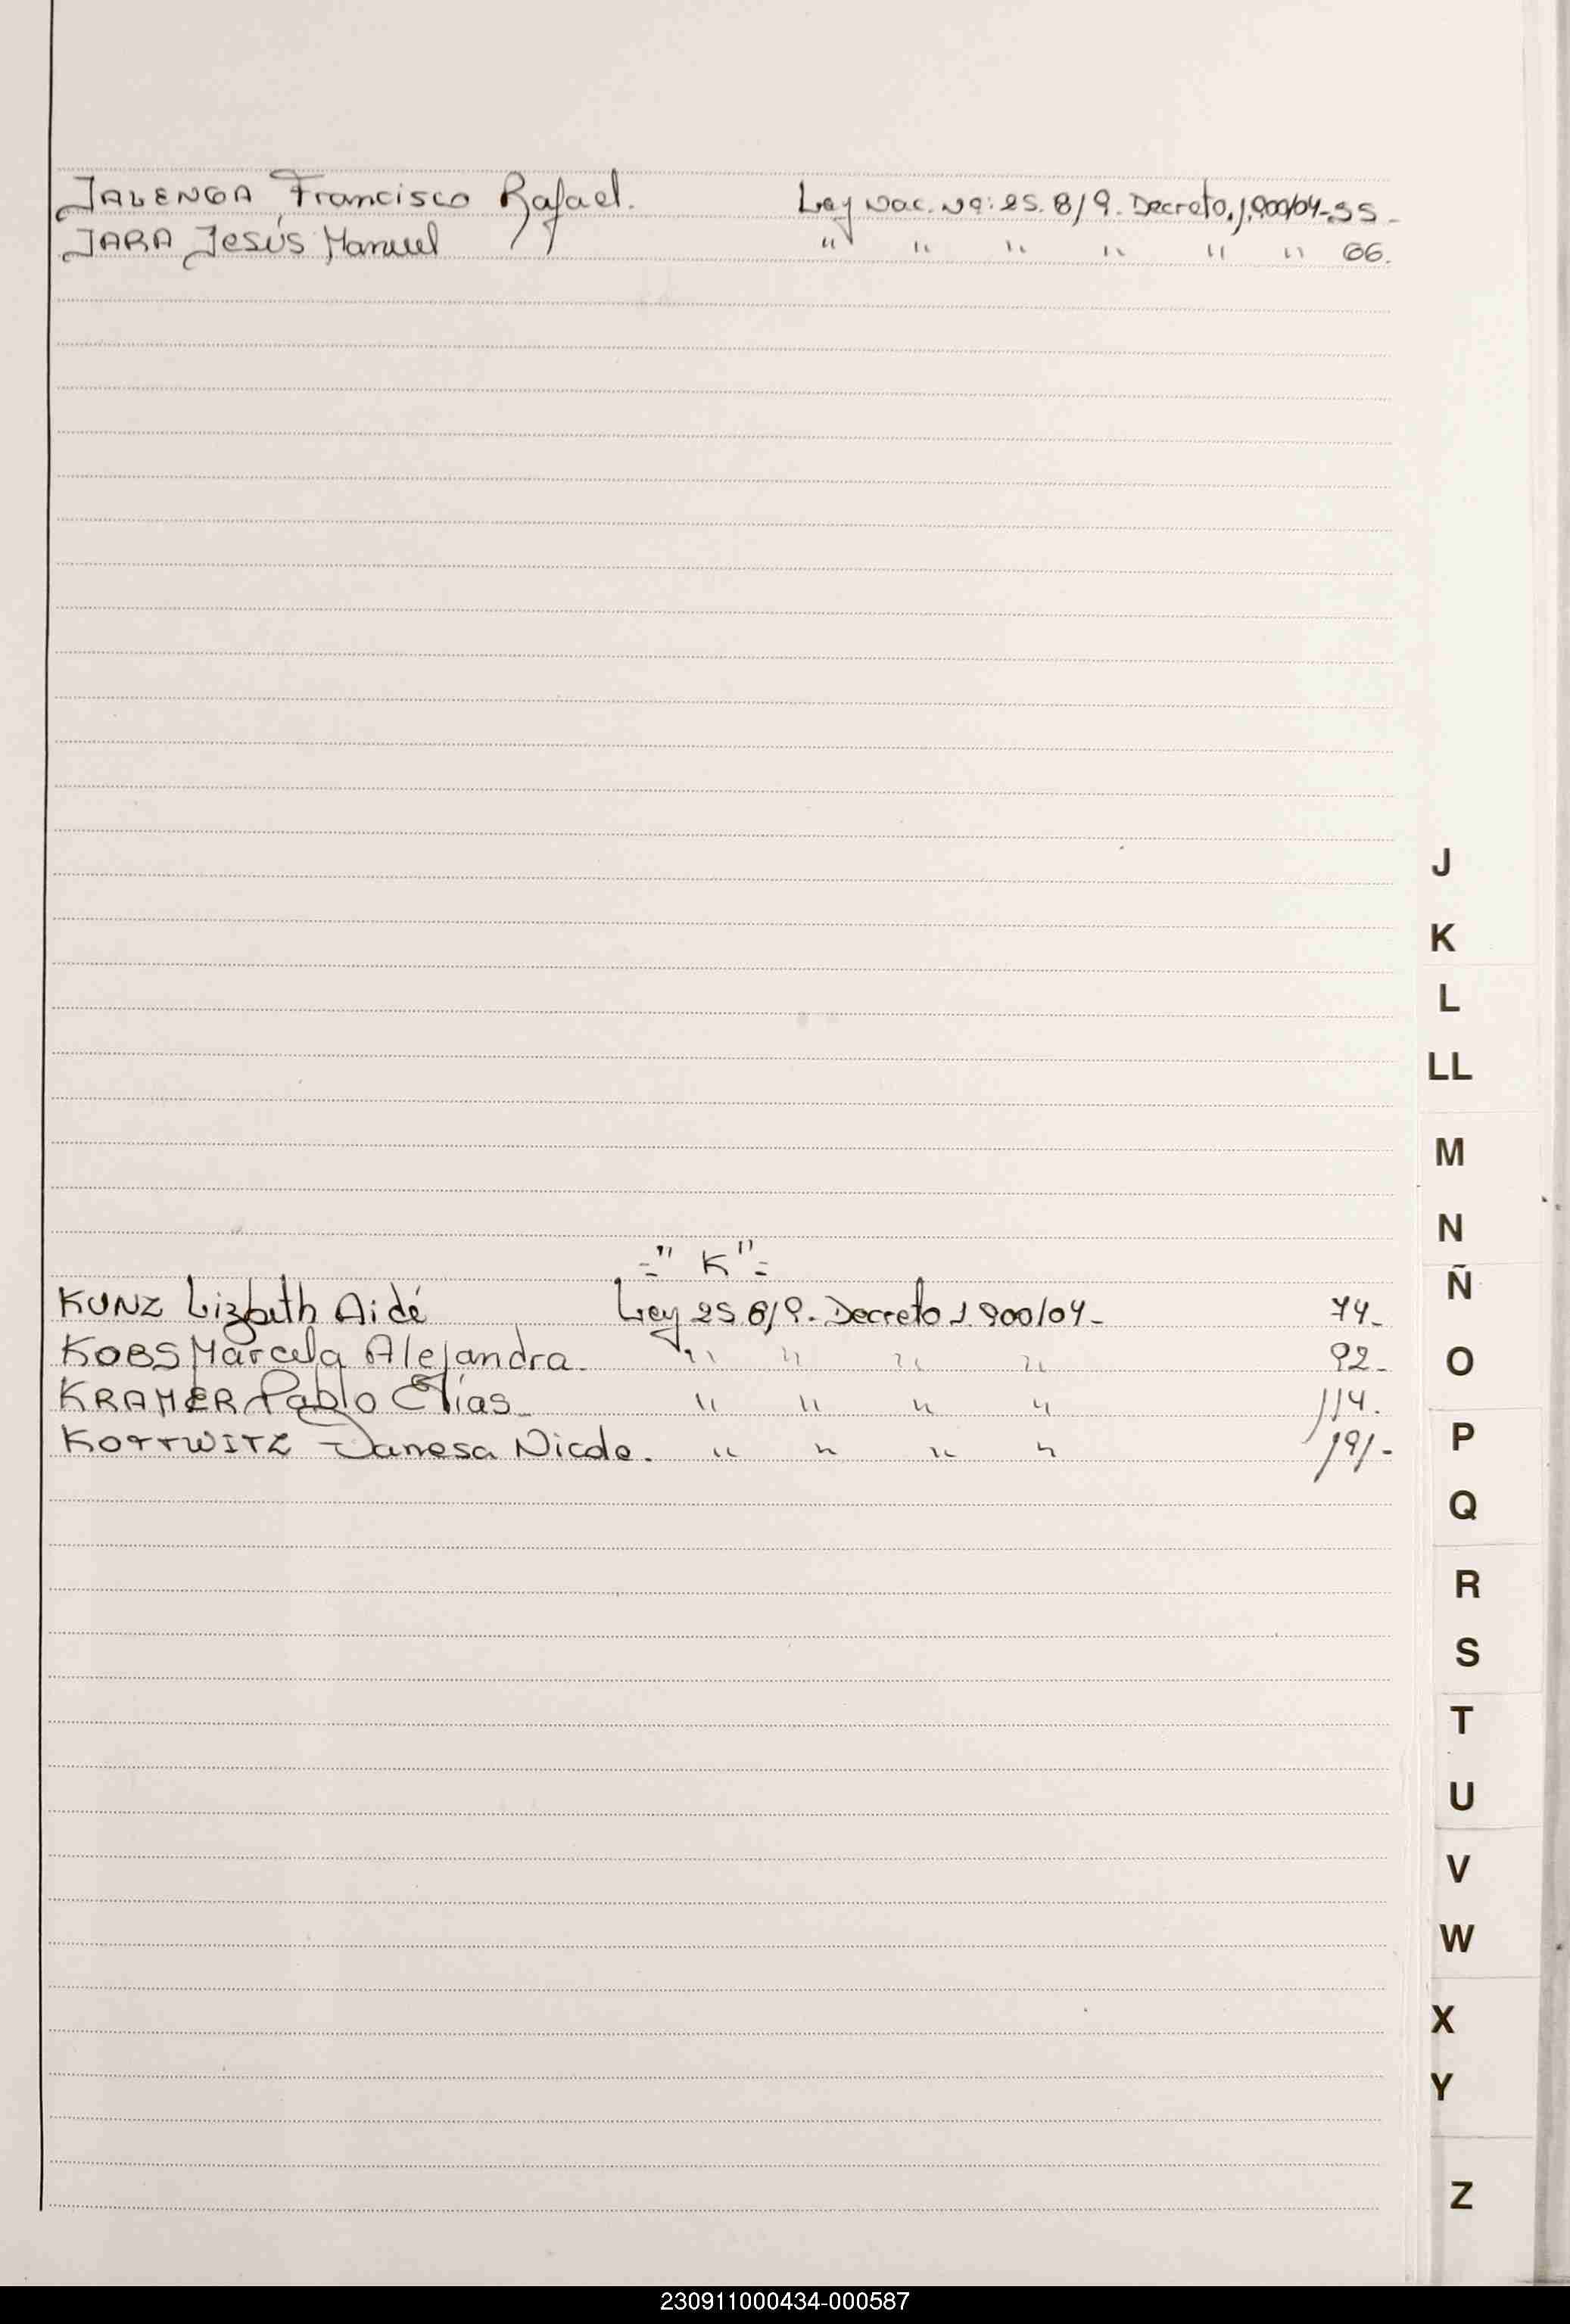 JALENGA Francisco Rafael. Ley Nac. Nº: 25.819. Decreto 1.900/04-55-
JARA Jesús Manuel " " " " " " 66.
="K"=
KUNZ Lizbeth Aidé Ley 25819. Decreto 1.900/04- 74-
KOBS Marcela Alejandra. " " " " 92-
KRAMER Pablo Elías " " " " 114.
KOTTWITZ Janesa Nicole. " " " " 191-
J
K
L
LL
M
N
Ñ
O
P
Q
R
S
T
U
V
W
X
Y
Z
230911000434-000587